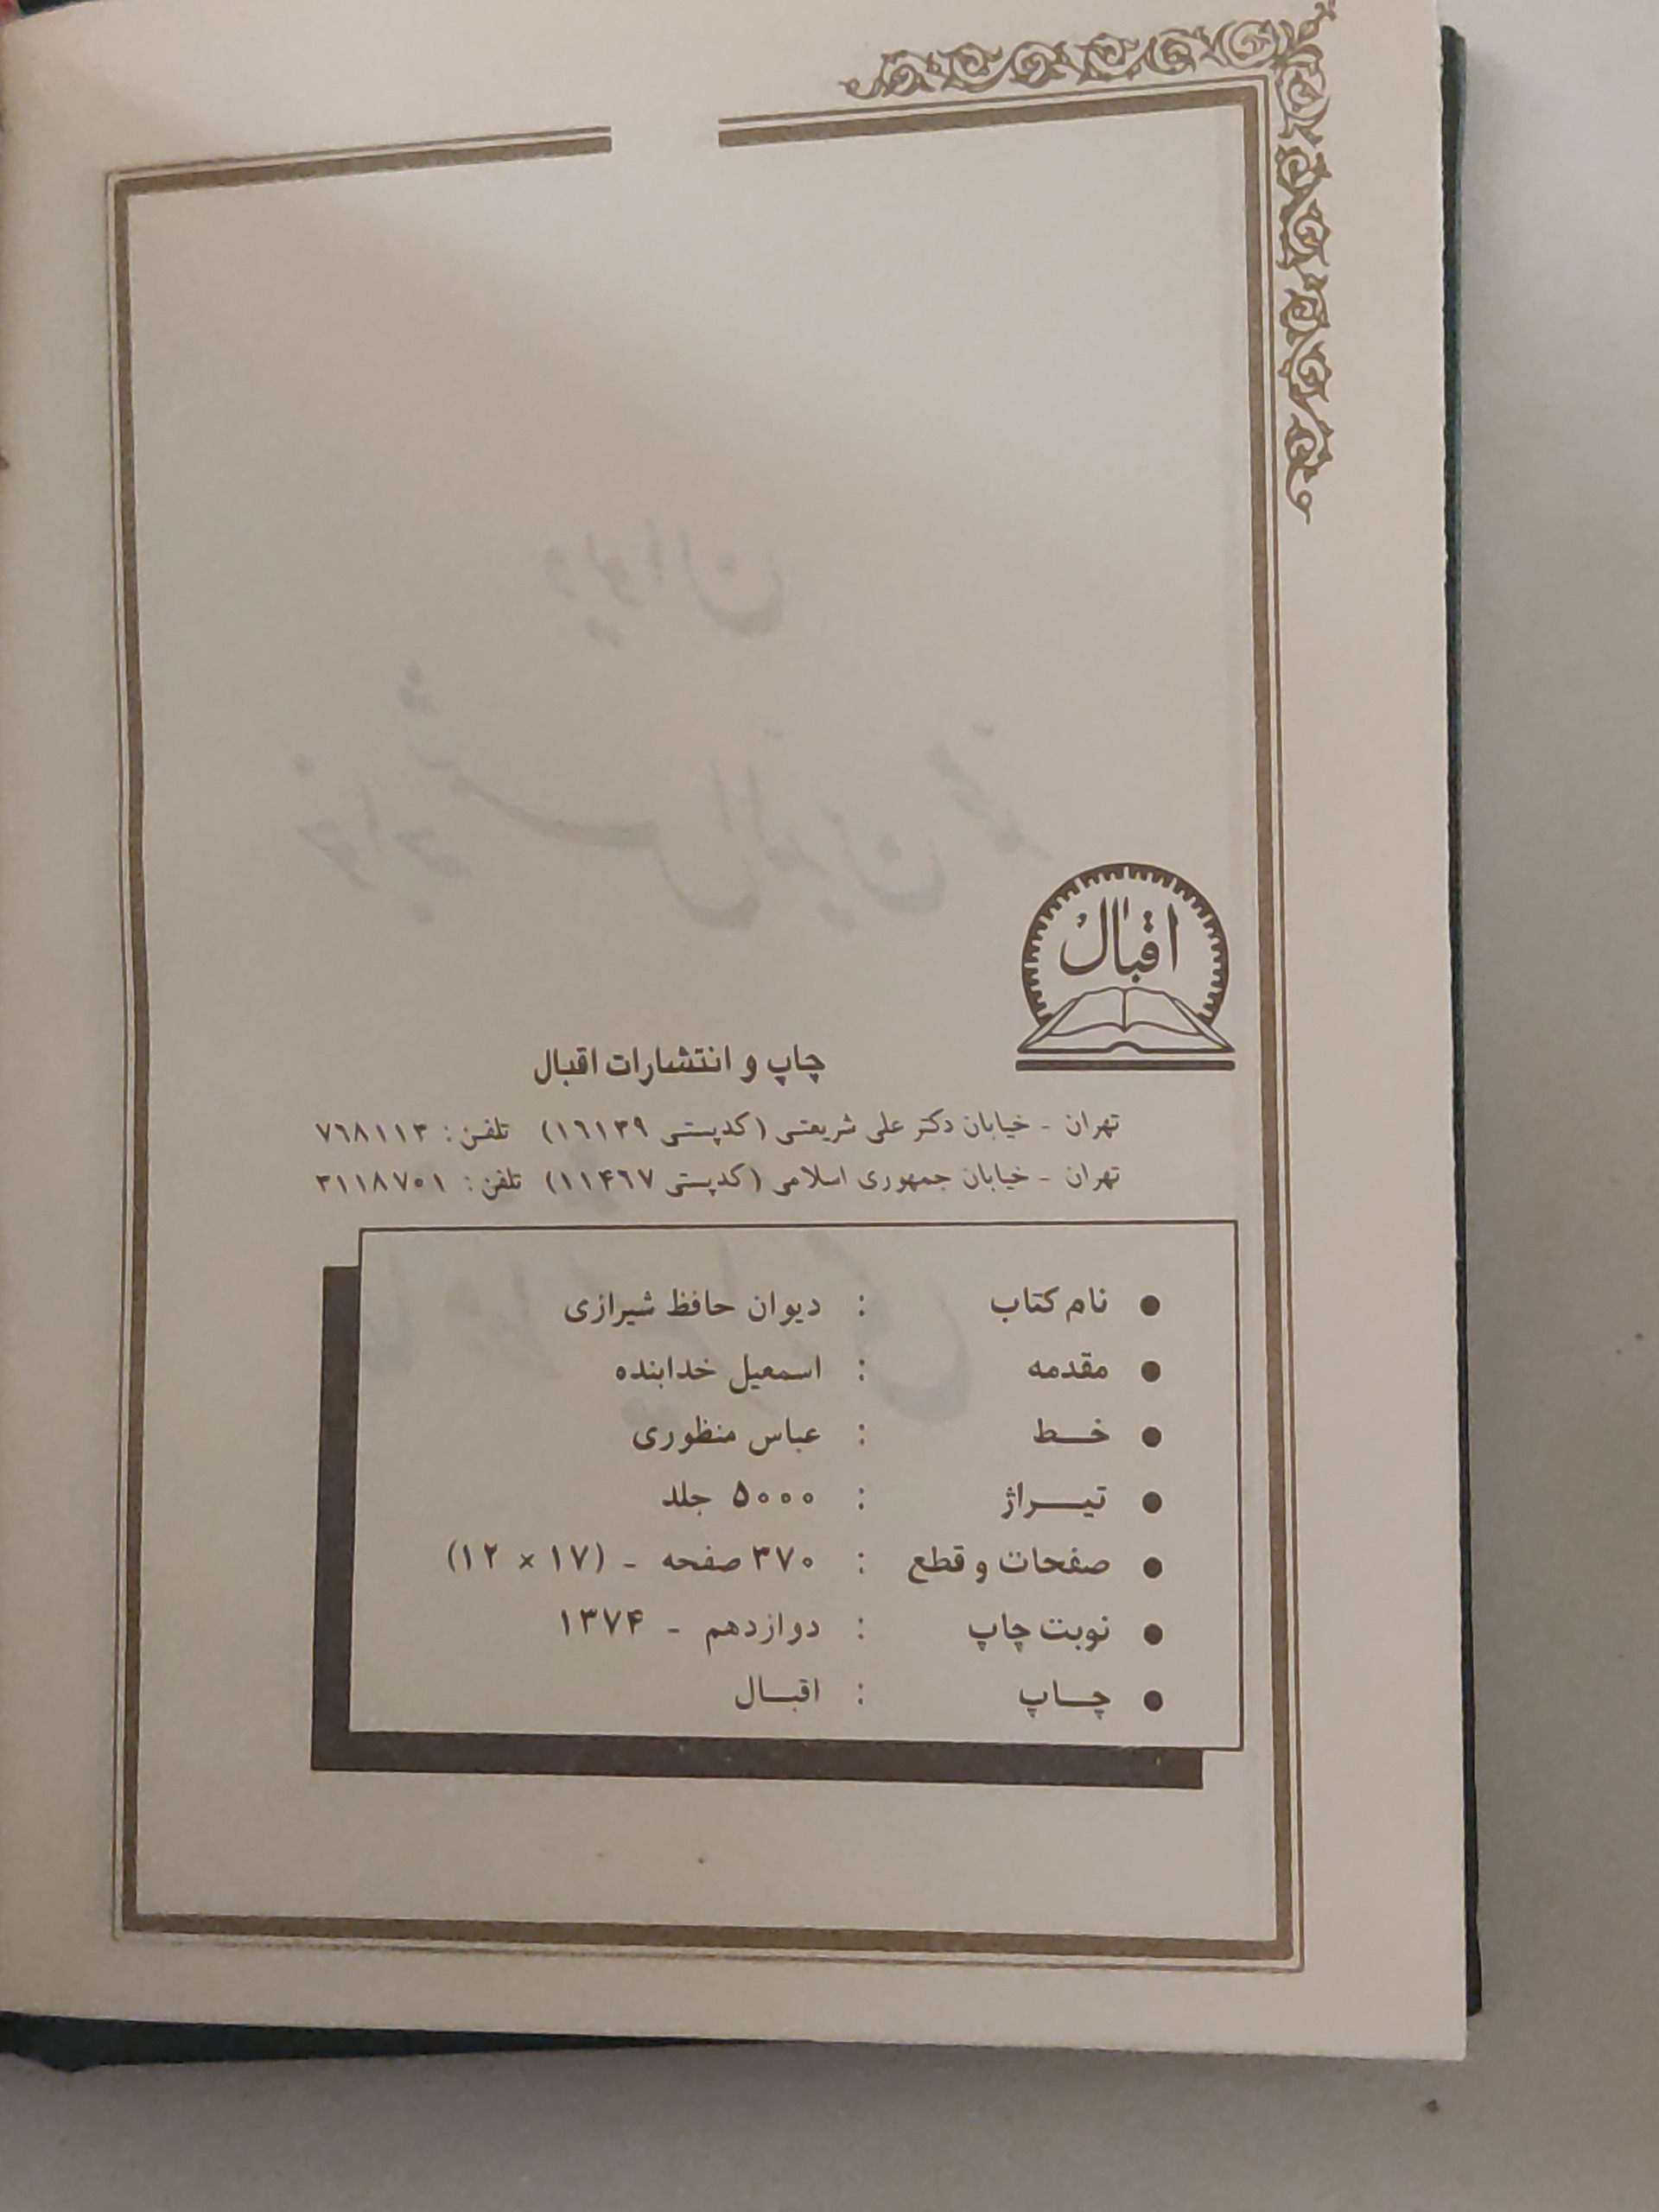 اقبال
چاپ و انتشارات اقبال
تهران - خیابان دکتر علی شریعتی (کدپستی ۱۶۱۳۹) تلفن: ۷۶۸۱۱۳
تهران - خیابان جمهوری اسلامی (کدپستی ۱۱۴۶۷) تلفن: ۳۱۱۸۷۰۱
● نام کتاب : دیوان حافظ شیرازی
● مقدمه : اسمعیل خدابنده
● خط : عباس منظوری
● تیراژ : ۵۰۰۰ جلد
● صفحات و قطع : ۳۷۰ صفحه - (۱۷ × ۱۲)
● نوبت چاپ : دوازدهم - ۱۳۷۴
● چاپ : اقبال